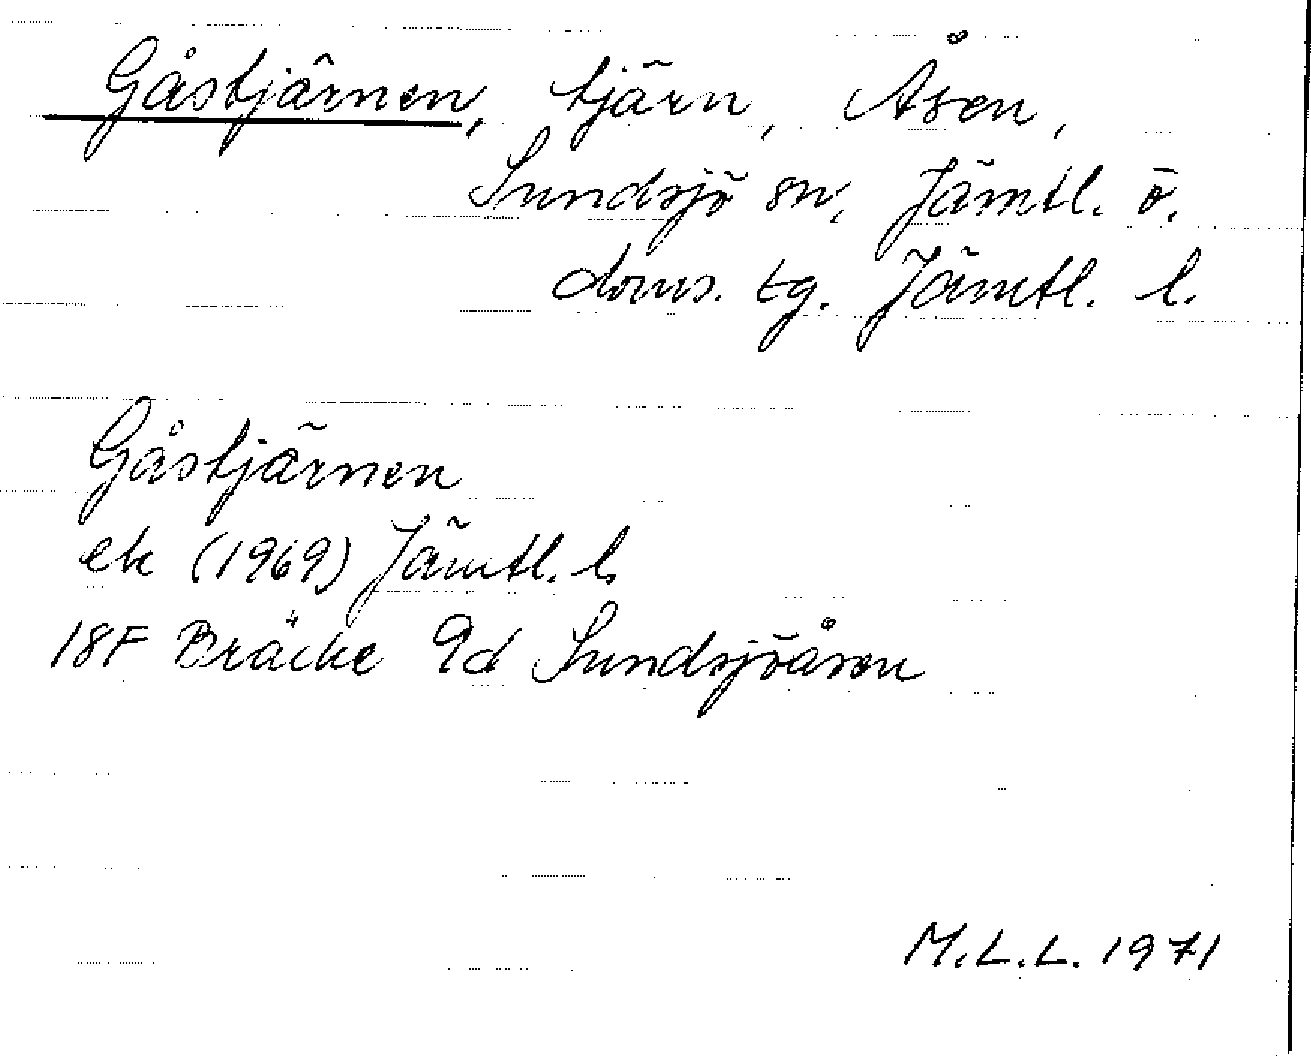 Gåstjärnen, tjärn, Åsen,
Sundsjö sn, Jämtl. ö.
doms. tg. Jämtl. l.
Gåstjärnen
ek (1969) Jämtl. l.
18F Bräcke 9d Sundsjöåsen
M.L.L. 1971